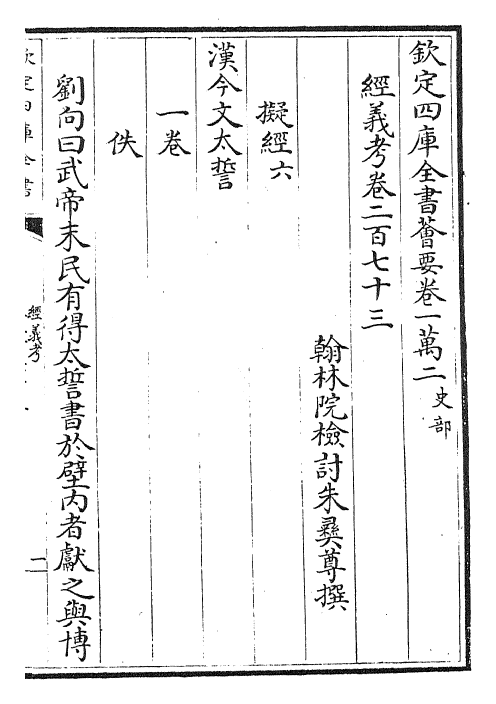 欽定四庫全書薈要卷一萬二 史部
經義考卷二百七十三
翰林院檢討朱彝尊撰
擬經六
漢今文太誓
一卷
佚
劉向曰武帝末民有得太誓書於壁内者獻之與博
欽定四庫全書
經義考